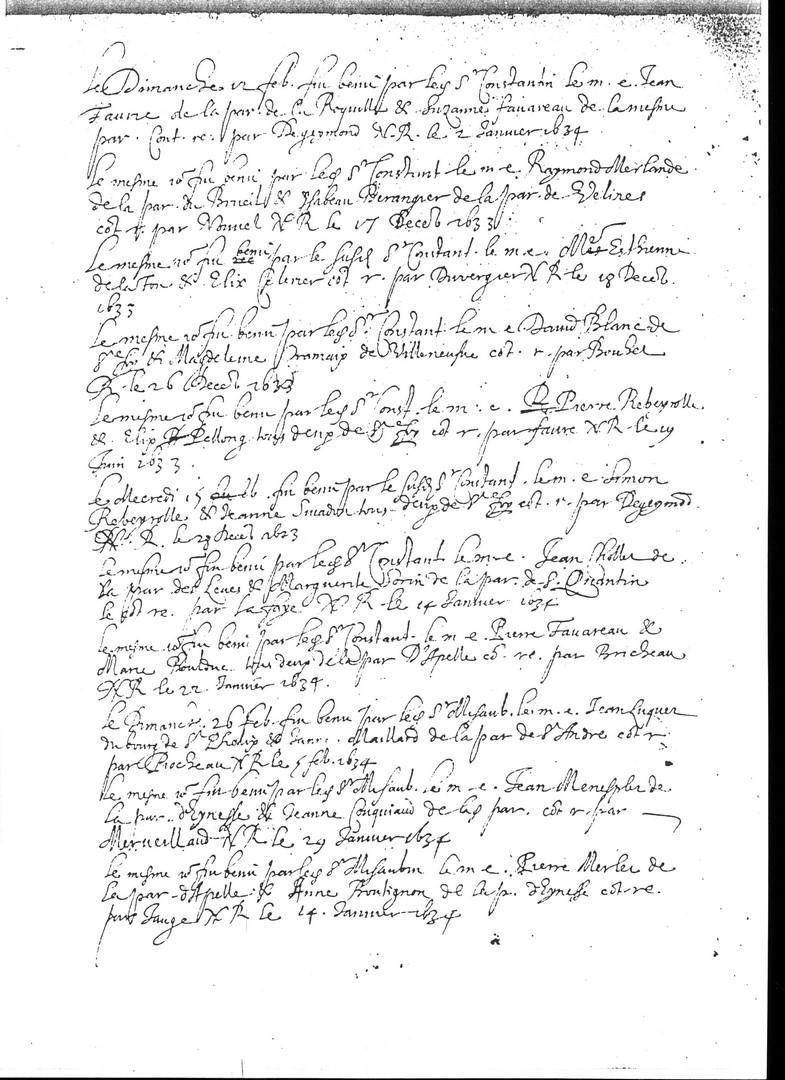 Le Dimanche 12 feb. fut beni par led Sr Constantin le m. e. Jean
Faure de la par. de la Roquille & Suzanne Favareau de la mesme
par. Cont. re. par Degeymond N.R. le 2 Janvier 1634
Le mesme io fut beni par led Sr Constant le m e. Raymond Merlande
de la par. du Brueil & Isabeau Berangier de la par. de Velines
cot r. par Nouvel N R le 17 Deceb 1633
Le mesme io fut beni par le susd Sr Constant. le m. e. Estienne
& Elix cot r. par Duvergier N R le 18 Deceb.
1633
Le mesme io fut beni par led Sr Constant le m e David Blanc de
Ste foy & Magdeleine de Villeneufve cot. r. par Bouhet
R. le 26 Deceb 1633
Le mesme io fut beni par led Sr Const. le m. e. Pierre Rebeyrolle
& Elix Pellong tous deux de Ste foy cot r. par faure N R le 19
Juin 1633.
Le Mecredi 15 feb. fut beni par le susd Sr Constant. le m. e Simon
Rebeyrolle & Jeanne tous deux de Ste foy cot. r. par Degeymond
N. R. le 29 Deceb 1633
Le mesme io fut beni par led Sr Constant le m e. Jean Chollet de
la par des Leves & Marguerite Sorin de la par. de St. Quantin
le cot re. par la faye N R le 14 Janvier 1634
Le mesme io fut beni par led Sr Constant. le m e. Pierre Favareau &
Marie tous deux de la par D'Apelle co. re. par Bricheau
N R le 22 Janvier 1634.
Le Dimanche. 26 feb. fut beni par led Sr Misaub. le m. e. Jean Luquet
du bourg de St Phelix & Jann. Maillard de la par de St Andre cot r
par Riocheau N R le 5 feb. 1634
Le mesme io fut beni par led Sr Misaub. le m e. Jean Menesplet de
la par. d'Eynesse & Jeanne Conquiaud de lad par. cot r. par
Merveillaud N R le 29 Janvier 1634
Le mesme io fut beni par led Sr Misaubin le m e. Pierre Merlet de
la par d'Apelle & Anne Boutignon de la p. d'Eynesse cot re.
par Jauge N R le 14. Janvier 1634